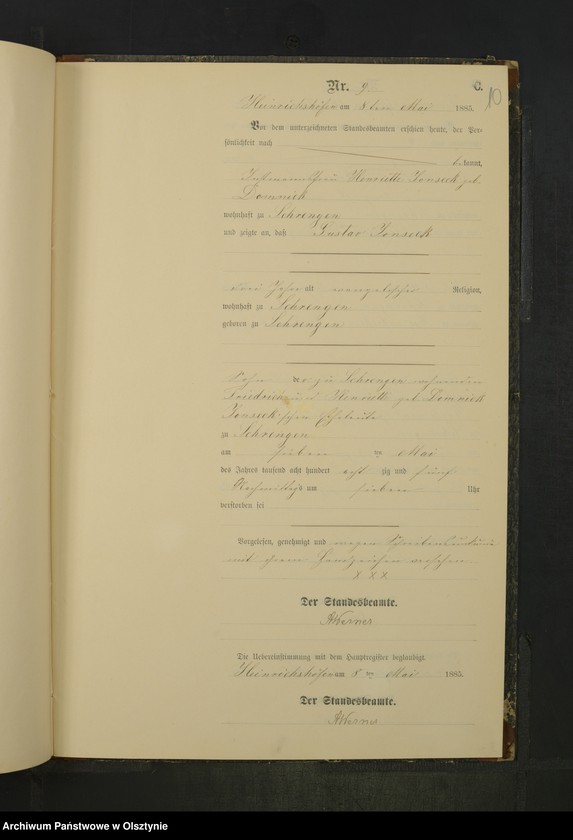 Nr. 9 C.
10
Heinrichshöfen am 8ten Mai 1885.
Vor dem unterzeichneten Standesbeamten erschien heute, der Per-
sönlichkeit nach
bekannt,
Henriette Jonseck geb.
Domnick
wohnhaft zu Schrengen
und zeigte an, daß Gustav Jonseck
drei Jahre alt evangelischer Religion,
wohnhaft zu Schrengen
geboren zu Schrengen
Sohn der zu Schrengen wohnenden
Friedrich und Henriette geb. Domnick
Jonseck'schen Eheleute
zu Schrengen
am sieben ten Mai
des Jahres tausend acht hundert acht zig und fünf
Nachmittags um sieben Uhr
verstorben sei
Vorgelesen, genehmigt und wegen Schreibensunkunde
mit ihrem Handzeichen versehen
x x x
Der Standesbeamte.
AWerner
Die Uebereinstimmung mit dem Hauptregister beglaubigt.
Heinrichshöfen am 8 ten Mai 1885.
Der Standesbeamte.
AWerner
Archiwum Państwowe w Olsztynie